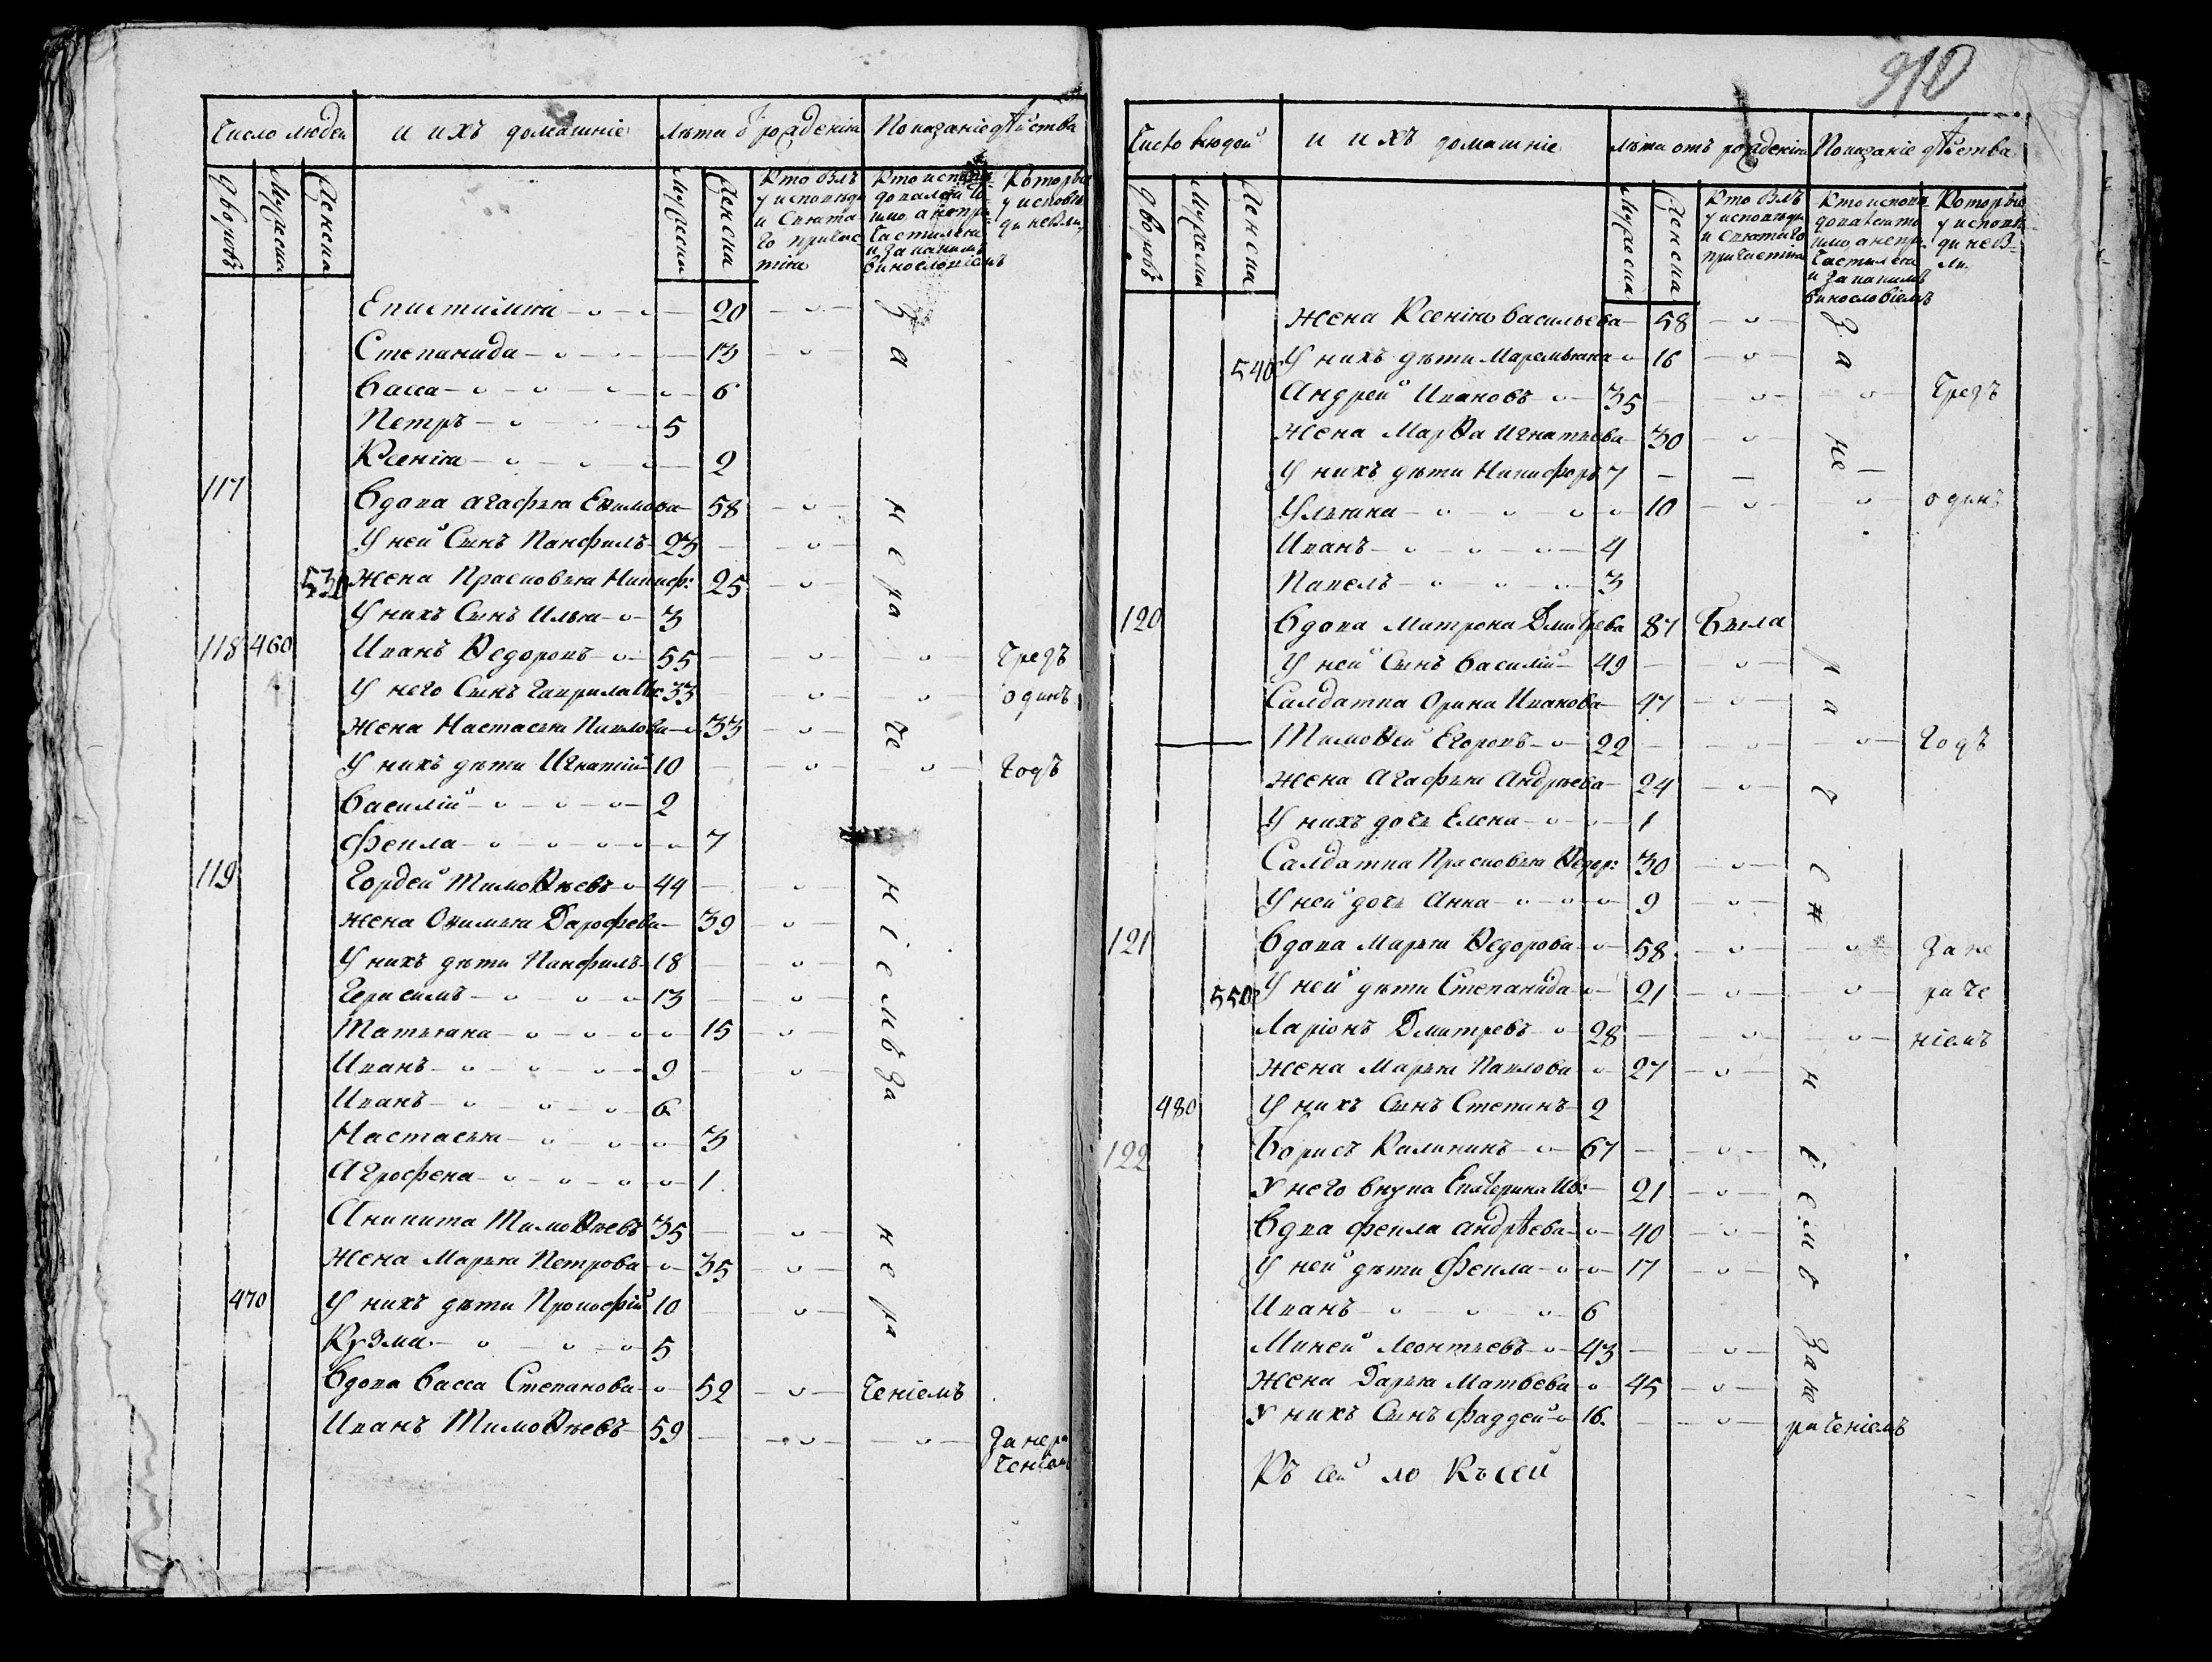 Число людей и ихъ домашніе лѣта ѿ рожденія Показаніе дѣйства
дворовъ Мужеска Женска Мужеска Женска Кто былъ у исповѣди и Святаго причастія Кто исповѣдовался токмо, а непричастился и за какимъ винословіемъ Которые у исповѣди небыли
Епистимія 20 за
Степанида 13
Васса 6
Петръ 5
Ксенія 2
117 Вдова Агафья Екимова 58 нера
У ней Сынъ Панфилъ 23
530 Жена Прасковья Никиф: 25
У нихъ Сынъ Илья 3
118 460 Иванъ Ѳедоровъ 55 чрезъ
У него Сынъ Гаврила 33 одинъ
Жена Настасья Павлова 33 че
У нихъ дѣти Игнатій 10 годъ
Василій 2
Фекла 7
119 Гордей Тимоѳѣевъ 44 ніемъ за
Жена Акимья Дарофева 39
У нихъ дѣти Панфилъ 18
Герасимъ 13
Татьяна 15
Иванъ 9
Иванъ 6
Настасья 3
Агрофена 1
Аникита Тимоѳѣевъ 35 нера
Жена Марья Петрова 35
470 У нихъ дѣти Прокофій 10
Кузма 5
Вдова Васса Степанова 52 ченіемъ
Иванъ Тимоѳѣевъ 59 за нера
ченіем
910
Число людей и ихъ домашніе лѣта отъ рожденія Показаніе дѣйства
дворовъ Мужеска Женска Мужеска Женска Кто былъ у исповѣди и Святаго причастія Кто исповѣдовался токмо, а непричастился и за какимъ винословіемъ Которые у исповѣди небыли.
Жена Ксенія Васильева 58 за
540 У нихъ дѣти Маремьяна 16
Андрей Ивановъ 35 чрезъ
Жена Марѳа Игнатьева 30 не
У нихъ дѣти Никифоръ 7
Ульяна 10 одинъ
Иванъ 4
Павелъ 3
120 Вдова Матрона Дмитрева 87 Была
У ней Сынъ Василій 49 ра
Салдатка Орина Иванова 47
Тимоѳей Егоровъ 22 годъ
Жена Агафья Андрѣева 24
У нихъ дочь Елена 1
Салдатка Прасковья Ѳедор: 30
У ней дочь Анна 9
121 Вдова Марья Ѳедорова 58 за не
550 У ней дѣти Степанида 21 раче
Ларіонъ Дмитревъ 28 ніемъ
Жена Марья Павлова 27 ніемъ
480 У нихъ Сынъ Степанъ 2
122 Борисъ Калининъ 67
У него внука Екатерина Ив: 21
Вдва Фекла Андрѣева 40
У ней дѣти Фекла 17
Иванъ 6
Миней Леонтьевъ 43 за не
Жена Дарья Матвева 45
У нихъ Сынъ Фаддей 16 раченіемъ
Къ сей